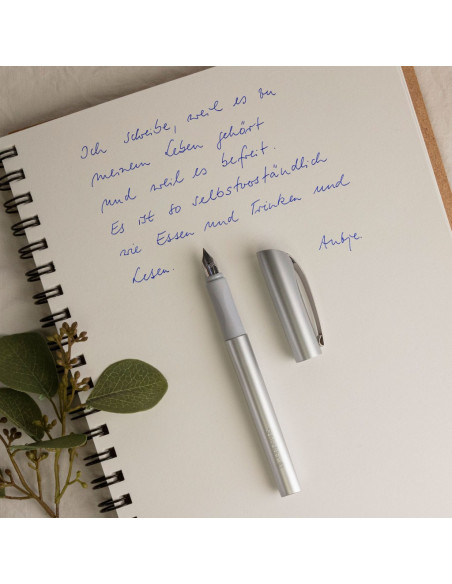 Ich schreibe, weil es zu
meinem Leben gehört
und weil es befreit.
Es ist so selbstverständlich
wie Essen und Trinken und
Lesen.
Antje